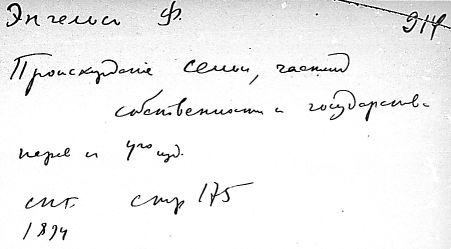 Энгельс Ф. 914
Происхождение семьи, частной
собственности и государства
перев с 4го изд.
СПб. стр 175
1894